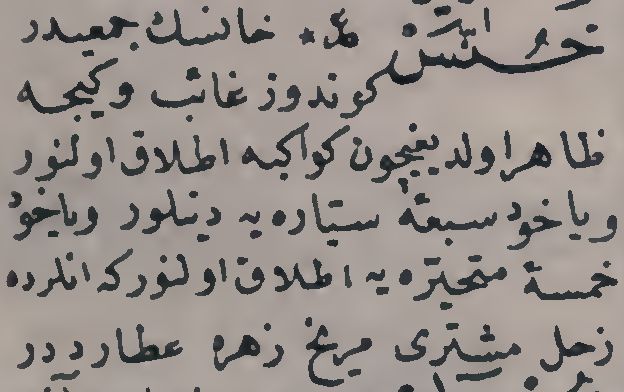 خنّس مد* خانسك جمعيدر
كوندوز غائب وكيجه
ظاهر اولديغيچون كواكبه اطلاق اولنور
وياخود سبعهٔ ستياره يه دينلور وياخود
خمسهٔ متحيّره يه اطلاق اولنوركه انلرده
زحل مشترى مريخ زهره عطارددر